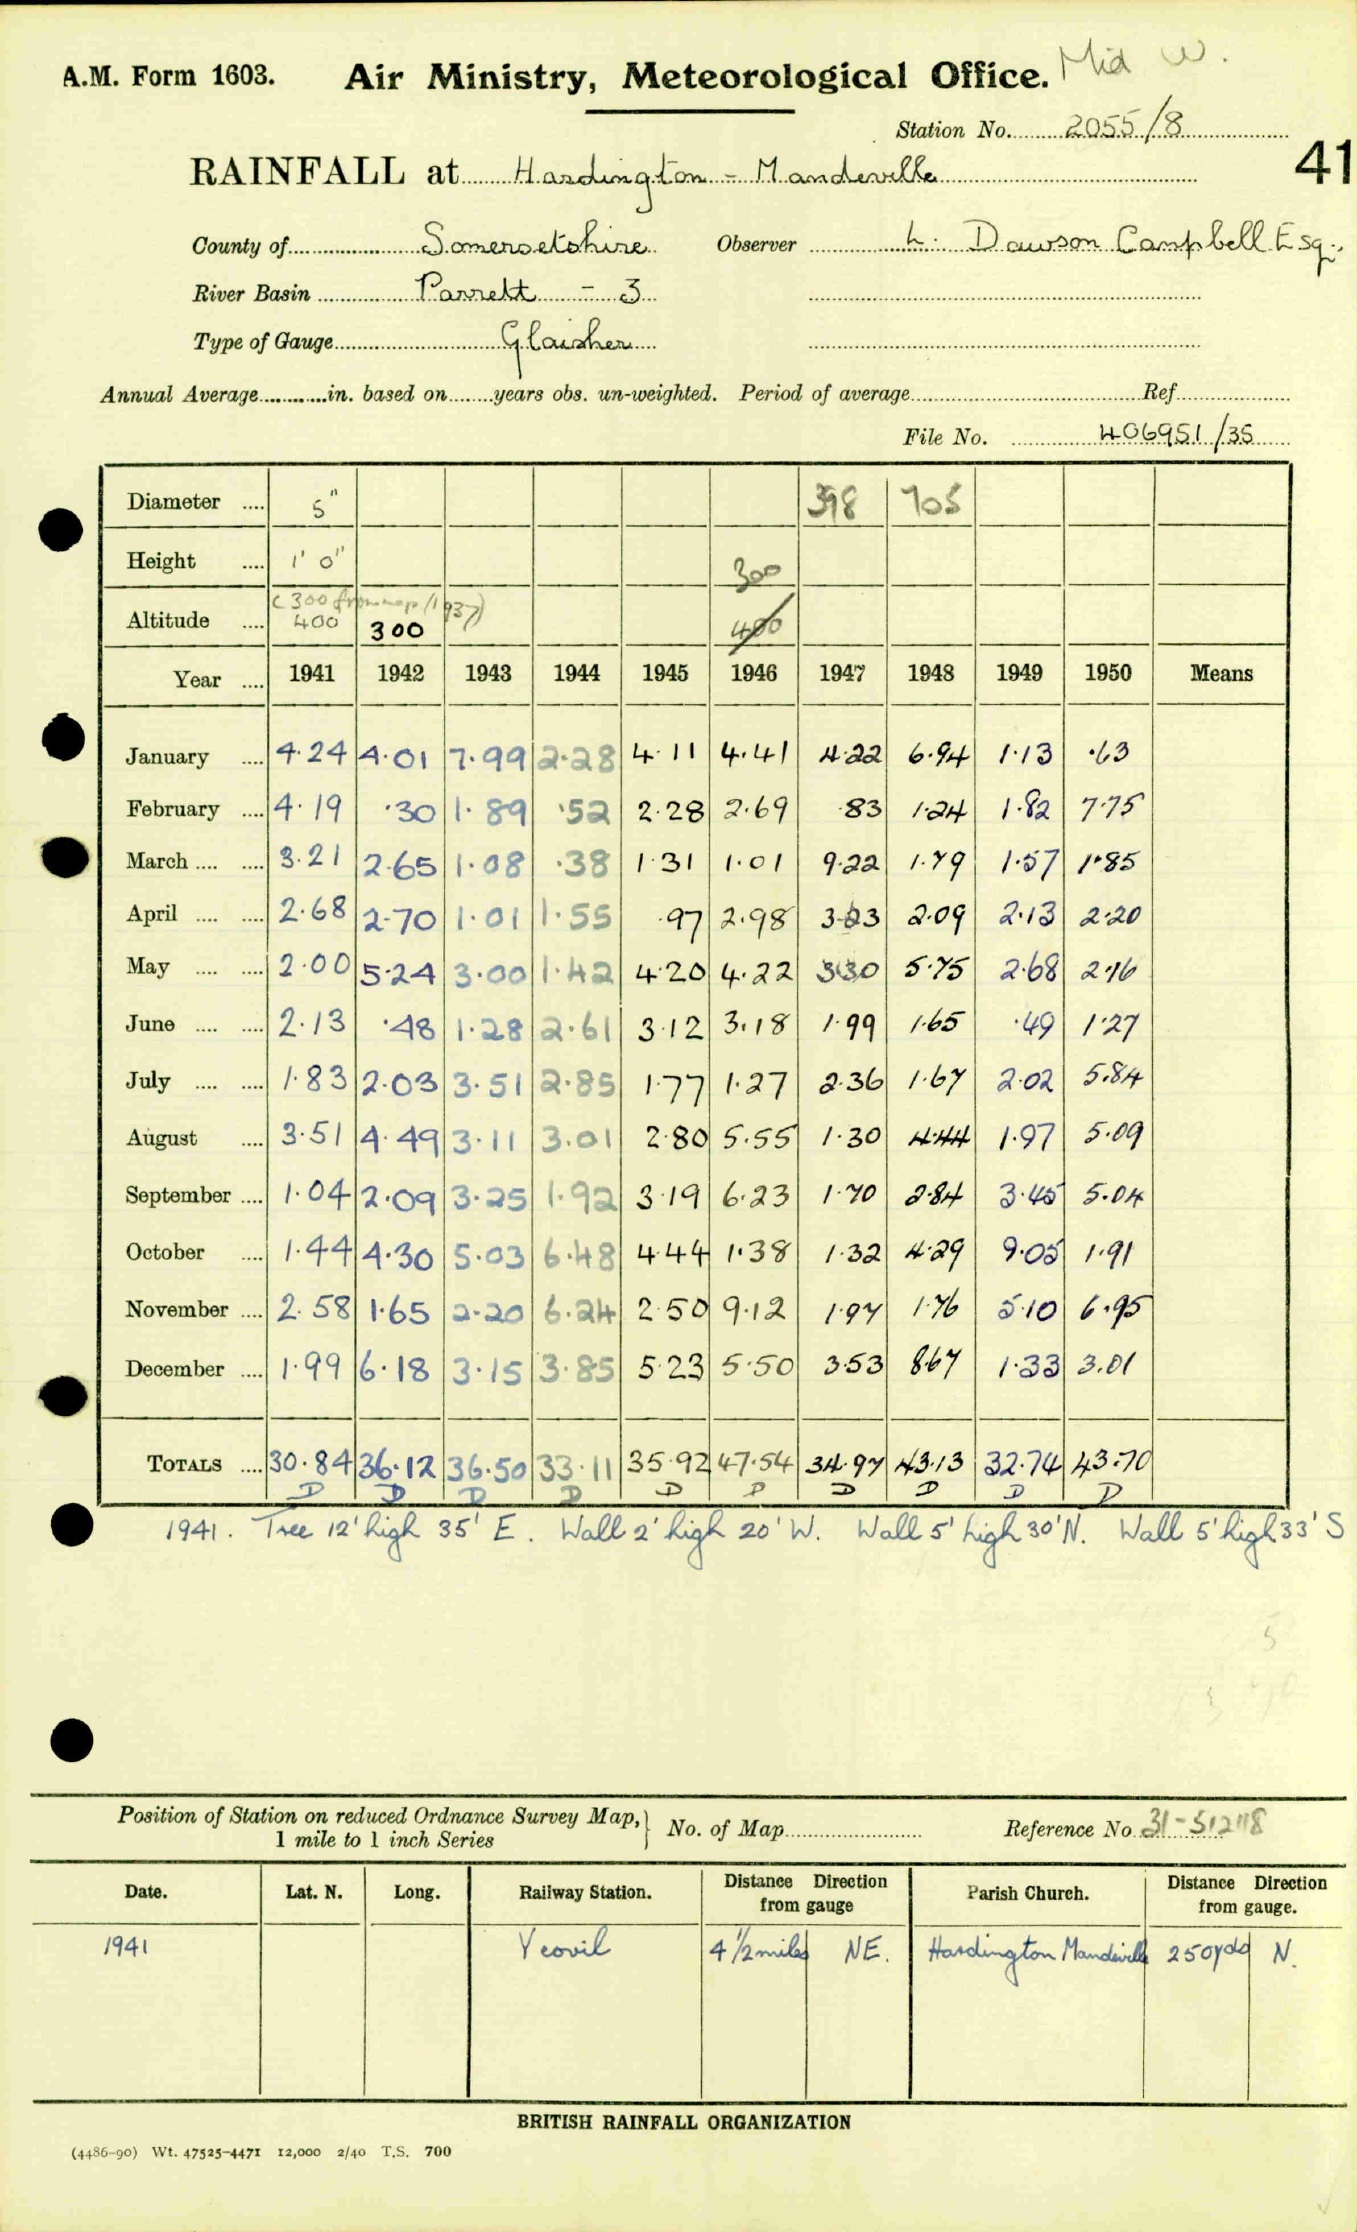 A.M. Form 1603. Air Ministry, Meteorological Office. Mid W.
Station No. 2055/8
RAINFALL at Hardington - Mandeville 41
County of Somersetshire Observer L. Dawson Campbell Esq.,
River Basin Parrett - 3
Type of Gauge Glaisher
Annual Average in. based on years obs. un-weighted. Period of average Ref
File No. 406951/35
Diameter 5" 398 705
Height 1' 0" 300
(300 from map (1937)
Altitude 400 300 400
Year 1941 1942 1943 1944 1945 1946 1947 1948 1949 1950 Means
January 4.24 4.01 7.99 2.28 4.11 4.41 4.22 6.94 1.13 .63
February 4.19 .30 1.89 .52 2.28 2.69 .83 1.24 1.82 7.75
March 3.21 2.65 1.08 .38 1.31 1.01 9.22 1.79 1.57 1.85
April 2.68 2.70 1.01 1.55 .97 2.98 3.23 2.09 2.13 2.20
May 2.00 5.24 3.00 1.42 4.20 4.22 3.30 5.75 2.68 2.16
June 2.13 .48 1.28 2.61 3.12 3.18 1.99 1.65 .49 1.27
July 1.83 2.03 3.51 2.85 1.77 1.27 2.36 1.67 2.02 5.84
August 3.51 4.49 3.11 3.01 2.80 5.55 1.30 4.44 1.97 5.09
September 1.04 2.09 3.25 1.92 3.19 6.23 1.70 2.84 3.45 5.04
October 1.44 4.30 5.03 6.48 4.44 1.38 1.32 4.29 9.05 1.91
November 2.58 1.65 2.20 6.24 2.50 9.12 1.97 1.76 5.10 6.95
December 1.99 6.18 3.15 3.85 5.23 5.50 3.53 8.67 1.33 3.01
TOTALS 30.84 36.12 36.50 33.11 35.92 47.54 34.97 43.13 32.74 43.70
D D D D D D D D D D
1941. Tree 12' high 35' E. Wall 2' high 20' W. Wall 5' high 30' N. Wall 5' high 33' S
Position of Station on reduced Ordnance Survey Map, 1 mile to 1 inch Series } No. of Map Reference No 31-512118
Date. Lat. N. Long. Railway Station. Distance Direction from gauge Parish Church. Distance Direction from gauge.
1941 Yeovil 4 1/2 miles NE. Hardington Mandeville 250 yds N.
BRITISH RAINFALL ORGANIZATION
(4486-90) Wt. 47525-4471 12,000 2/40 T.S. 700